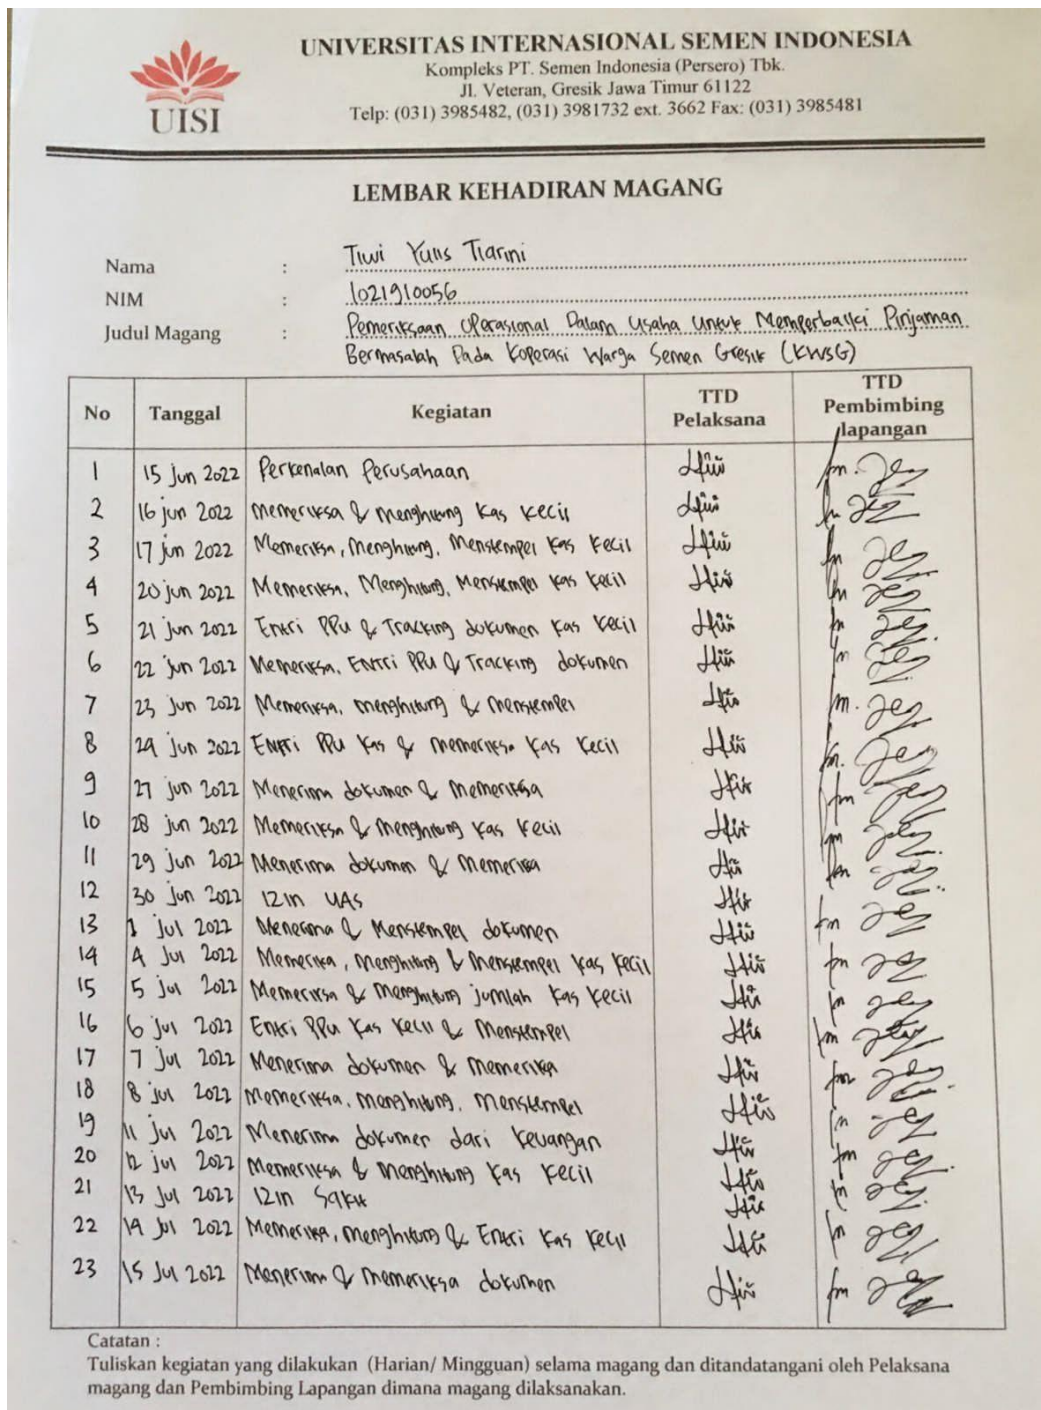 UNIVERSITAS INTERNASIONAL SEMEN INDONESIA
Kompleks PT. Semen Indonesia (Persero) Tbk.
Jl. Veteran, Gresik Jawa Timur 61122
Telp: (031) 3985482, (031) 3981732 ext. 3662 Fax: (031) 3985481
UISI
LEMBAR KEHADIRAN MAGANG
Nama : Tiwi Yulis Tiarini
NIM : 1021910056
Judul Magang : Pemeriksaan Operasional Dalam Usaha Untuk Memperbaiki Pinjaman
Bermasalah Pada Koperasi Warga Semen Gresik (KWSG)
No Tanggal Kegiatan TTD Pelaksana TTD Pembimbing lapangan
1 15 Jun 2022 Perkenalan Perusahaan
2 16 jun 2022 Memeriksa & Menghitung Kas Kecil
3 17 jun 2022 Memeriksa, Menghitung, Menstempel Kas Kecil
4 20 jun 2022 Memeriksa, Menghitung, Menstempel Kas Kecil
5 21 Jun 2022 Entri PPU & Tracking dokumen Kas Kecil
6 22 Jun 2022 Memeriksa, Entri PPU & Tracking dokumen
7 23 Jun 2022 Memeriksa, menghitung & menstempel
8 24 Jun 2022 Entri PPU Kas & memeriksa Kas Kecil
9 27 jun 2022 Menerima dokumen & memeriksa
10 28 jun 2022 Memeriksa & menghitung Kas Kecil
11 29 Jun 2022 Menerima dokumen & Memeriksa
12 30 Jun 2022 Izin UAS
13 1 Jul 2022 Menerima & Menstempel dokumen
14 4 Jul 2022 Memeriksa, Menghitung & Menstempel Kas Kecil
15 5 Jul 2022 Memeriksa & Menghitung jumlah Kas Kecil
16 6 Jul 2022 Entri PPU Kas Kecil & Menstempel
17 7 Jul 2022 Menerima dokumen & memeriksa
18 8 jul 2022 Memeriksa, menghitung, menstempel
19 11 Jul 2022 Menerima dokumen dari Keuangan
20 12 jul 2022 Memeriksa & menghitung Kas Kecil
21 13 Jul 2022 Izin Sakit
22 14 Jul 2022 Memeriksa, menghitung & Entri Kas Kecil
23 15 Jul 2022 Menerima & memeriksa dokumen
Catatan :
Tuliskan kegiatan yang dilakukan (Harian/ Mingguan) selama magang dan ditandatangani oleh Pelaksana
magang dan Pembimbing Lapangan dimana magang dilaksanakan.